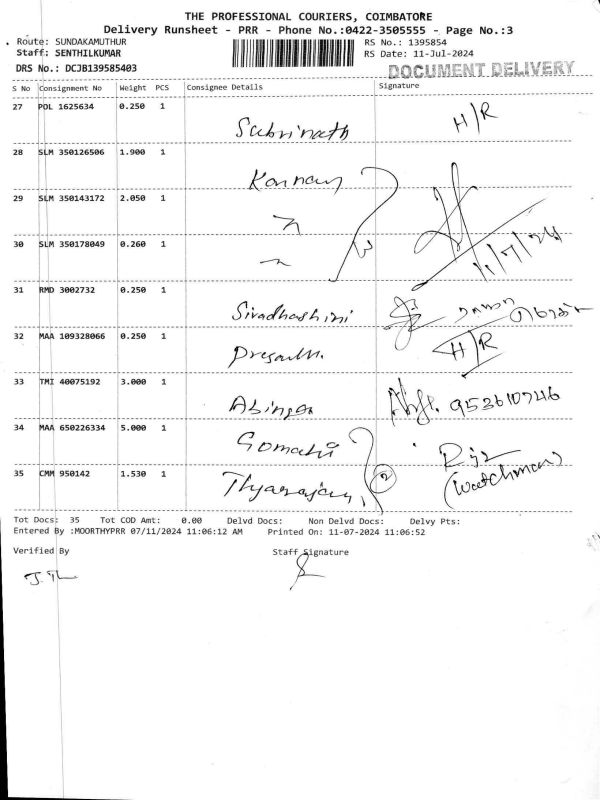 THE PROFESSIONAL COURIERS, COIMBATORE
Delivery Runsheet - PRR - Phone No.:0422-3505555 - Page No.:3
Route: SUNDAKAMUTHUR
RS No.: 1395854
Staff: SENTHILKUMAR
RS Date: 11-Jul-2024
DRS No.: DCJB139585403
DOCUMENT DELIVERY
S No Consignment No Weight PCS Consignee Details Signature
27 POL 1625634 0.250 1
Sabrinath H/R
28 SLM 350126506 1.900 1
Kannan
29 SLM 350143172 2.050 1
11/7/24
30 SLM 350178049 0.260 1
31 RMD 3002732 0.250 1
Sivadharshini
32 MAA 109328066 0.250 1
Prasanth H/R
33 TMI 40075192 3.000 1
34 MAA 650226334 5.000 1
Gomathi
35 CMM 950142 1.530 1
Thyagarajan 2 (watchman)
Tot Docs: 35 Tot COD Amt: 0.00 Delvd Docs: Non Delvd Docs: Delvy Pts:
Entered By :MOORTHYPRR 07/11/2024 11:06:12 AM Printed On: 11-07-2024 11:06:52
Verified By Staff Signature